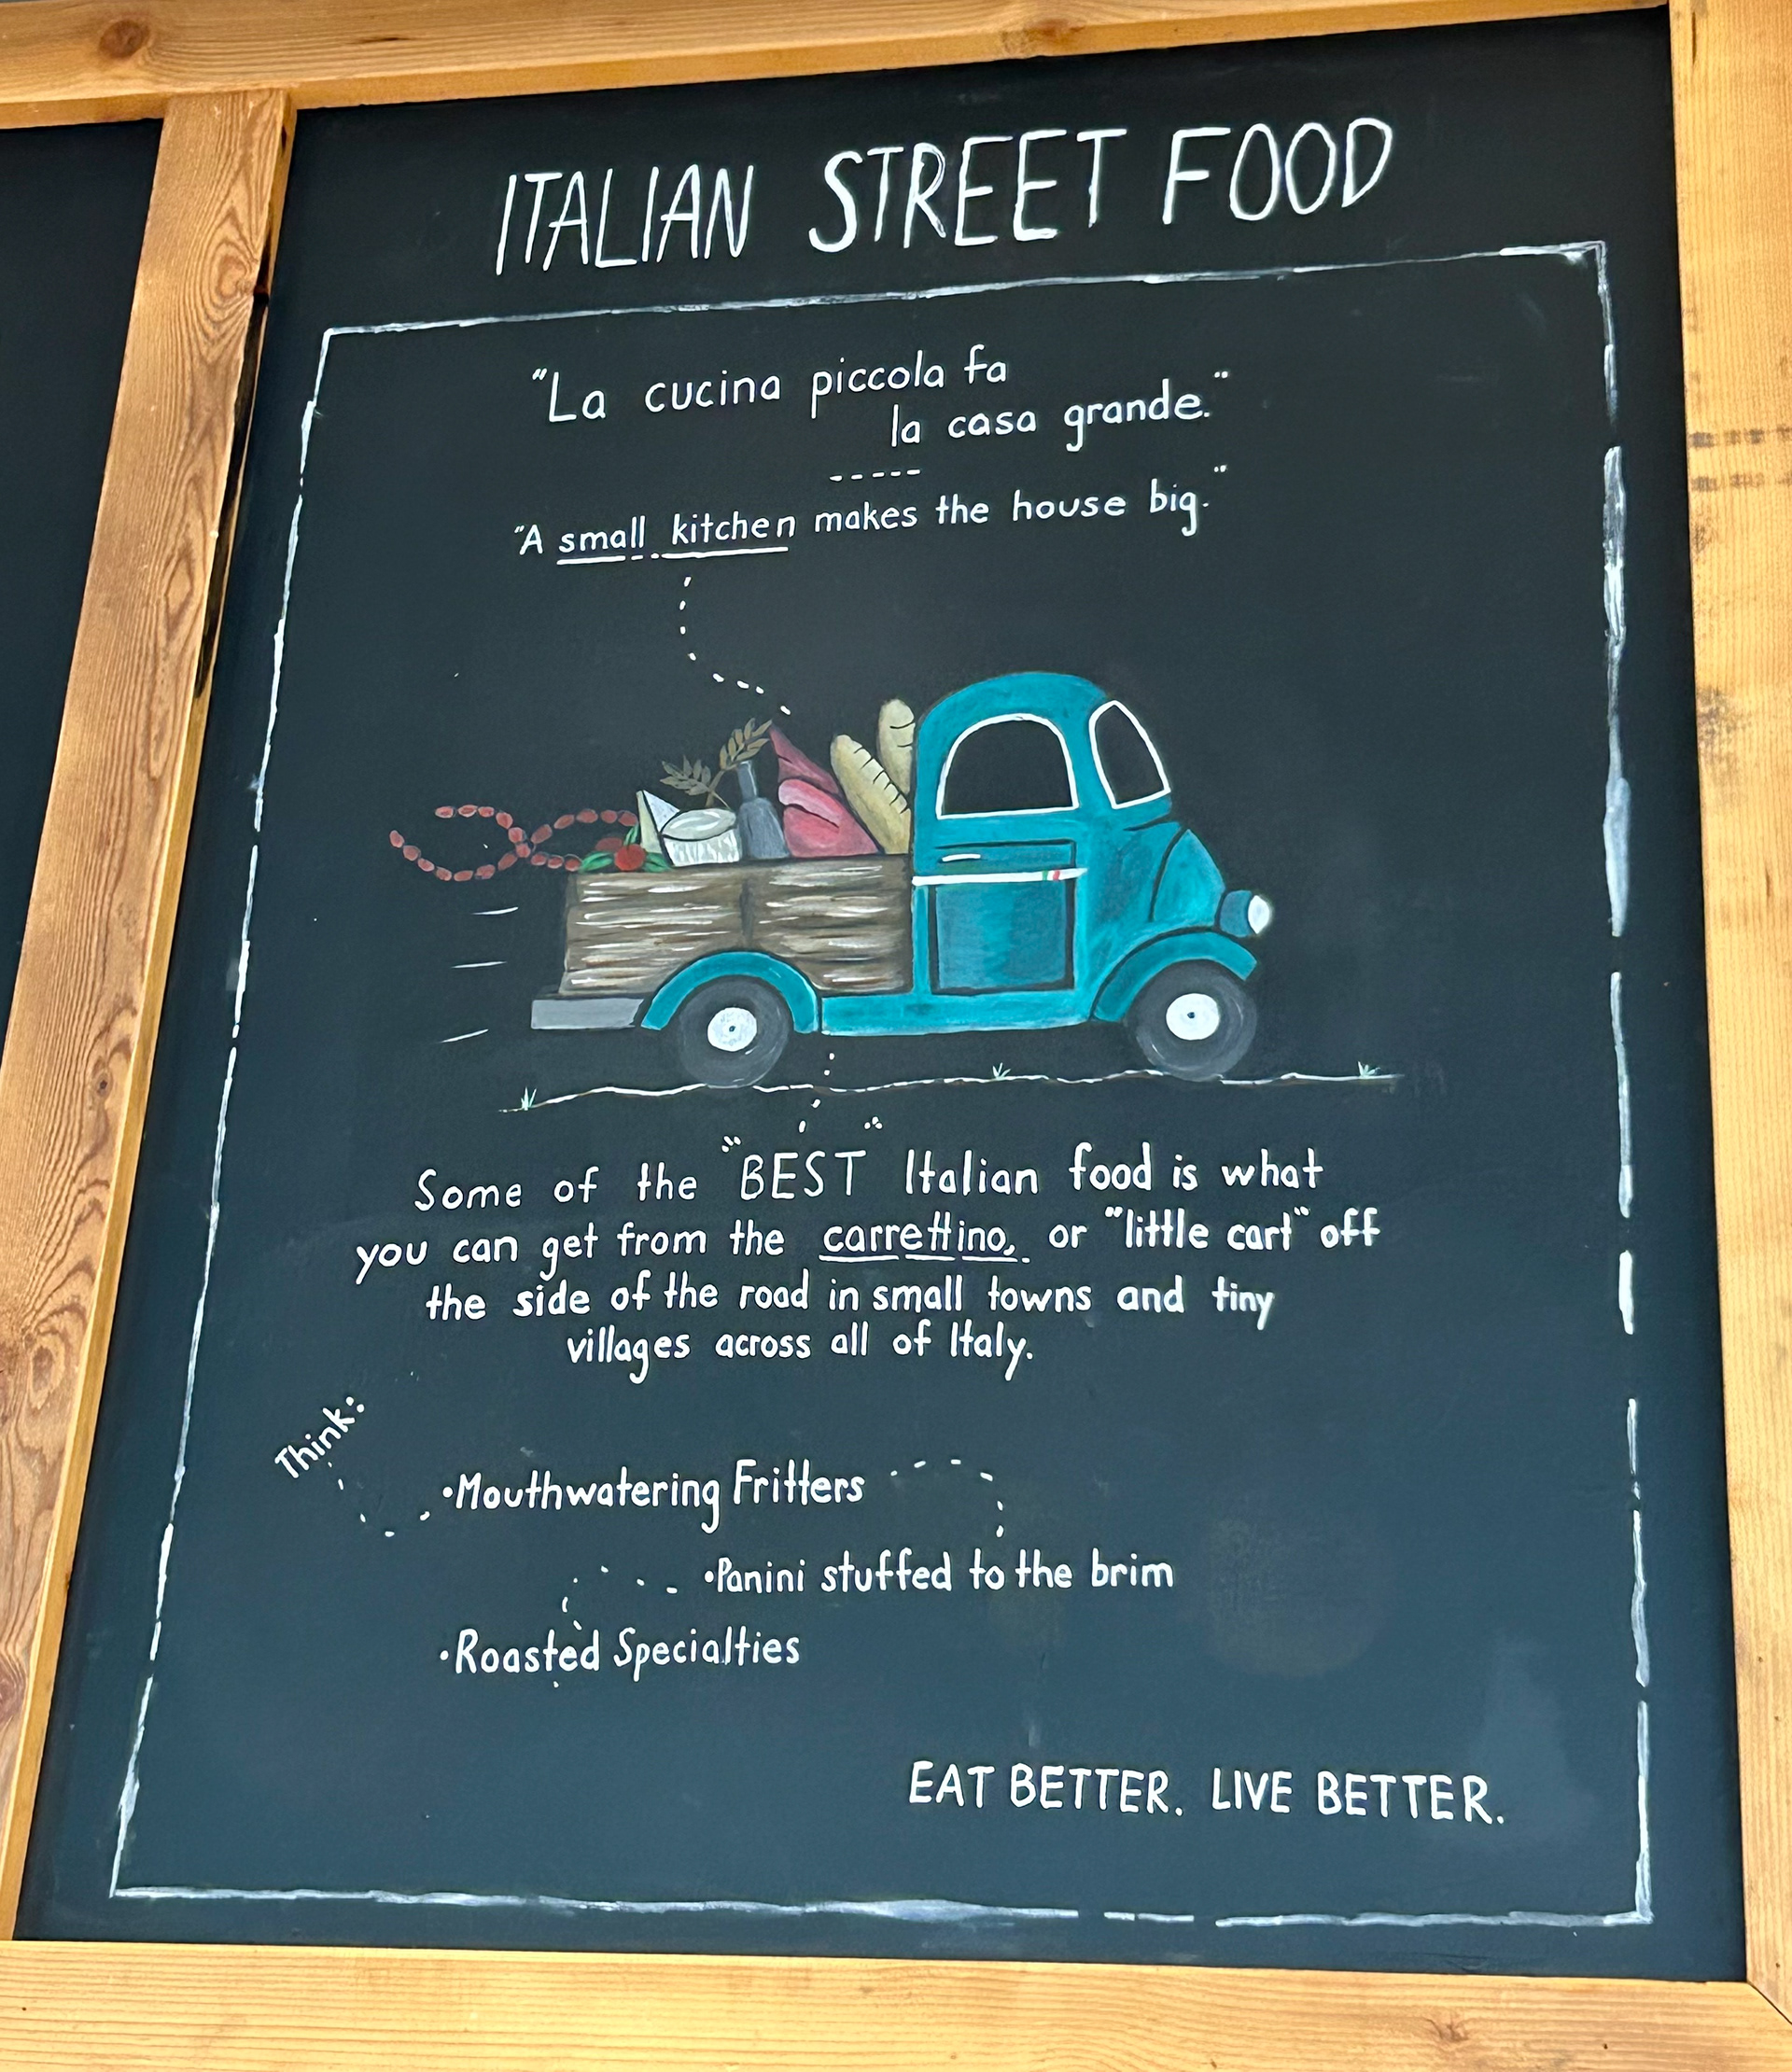 ITALIAN STREET FOOD
"La cucina piccola fa
la casa grande."
"A small kitchen makes the house big."
Some of the "BEST" Italian food is what
you can get from the carrettino, or "little cart" off
the side of the road in small towns and tiny
villages across all of Italy.
Think:
•Mouthwatering Fritters
•Panini stuffed to the brim
•Roasted Specialties
EAT BETTER. LIVE BETTER.